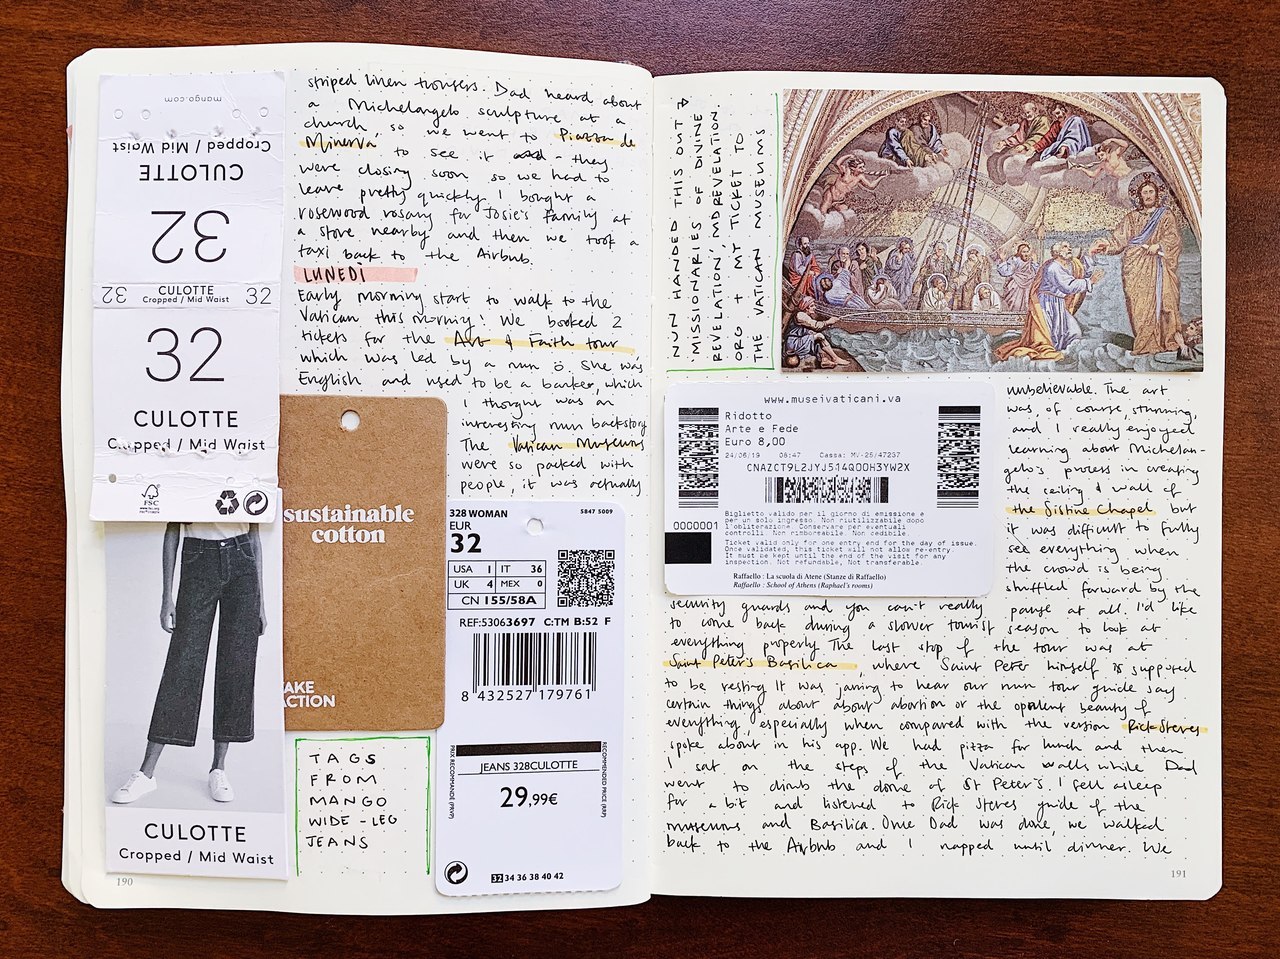 mango.com
Cropped / Mid Waist
CULOTTE
32
32
CULOTTE
Cropped / Mid Waist
32
32
CULOTTE
Cropped / Mid Waist
FSC
www.fsc.org
CULOTTE
Cropped / Mid Waist
190
striped linen trousers. Dad heard about
a Michelangelo sculpture at a
church, so we went to Piazza de
Minerva to see it - they
were closing soon so we had to
leave pretty quickly. I bought a
rosewood rosary for Josie's family at
a store nearby and then we took a
taxi back to the Airbnb.
LUNEDÌ
Early morning start to walk to the
Vatican this morning! We booked 2
tickets for the Art & Faith tour
which was led by a nun ö She was
English and used to be a banker, which
I thought was an
interesting nun backstory
The Vatican Museums
were so packed with
people, it was actually
sustainable
cotton
TAKE
ACTION
328 WOMAN
5847 5009
EUR
32
USA 1 IT 36
UK 4 MEX 0
CN 155/58A
REF:53063697 C:TM B:52 F
8 432527 179761
PRIX RECOMMANDÉ (PRVP)
RECOMMENDED PRICE (RRP)
JEANS 328CULOTTE
29,99€
32 34 36 38 40 42
TAGS
FROM
MANGO
WIDE-LEG
JEANS
NUN HANDED THIS OUT
'MISSIONARIES OF DIVINE
REVELATION', MDREVELATION.
ORG + MY TICKET TO
THE VATICAN MUSEUMS
www.museivaticani.va
Ridotto
Arte e Fede
Euro 8,00
24/06/19 08:47 Cassa: MV-25/47237
CNAZCT9L2JYJ514QO0H3YW2X
0000001
Biglietto valido per il giorno di emissione e
per un solo ingresso. Non riutilizzabile dopo
l'obliterazione. Conservare per eventuali
controlli. Non rimborsabile. Non cedibile.
Ticket valid only for one entry end for the day of issue.
Once validated, this ticket will not allow re-entry.
It must be kept until the end of the visit for any
inspection. Not refundable, Not transferable.
Raffaello : La scuola di Atene (Stanze di Raffaello)
Raffaello : School of Athens (Raphael's rooms)
unbelievable. The art
was, of course, stunning,
and I really enjoyed
learning about Michelan-
gelo's process in creating
the ceiling & wall of
the Sistine Chapel but
it was difficult to fully
see everything when
the crowd is being
shuffled forward by the
security guards and you can't really pause at all. I'd like
to come back during a slower tourist season to look at
everything properly. The last stop of the tour was at
Saint Peter's Basilica, where Saint Peter himself is supposed
to be resting. It was jarring to hear our nun tour guide say
certain things about about abortion or the opulent beauty of
everything, especially when compared with the version Rick Steves
spoke about in his app. We had pizza for lunch and then
I sat on the steps of the Vatican walls while Dad
went to climb the dome of St Peter's. I fell asleep
for a bit and listened to Rick Steves guide of the
museums and Basilica. Once Dad was done, we walked
back to the Airbnb and I napped until dinner. We
191